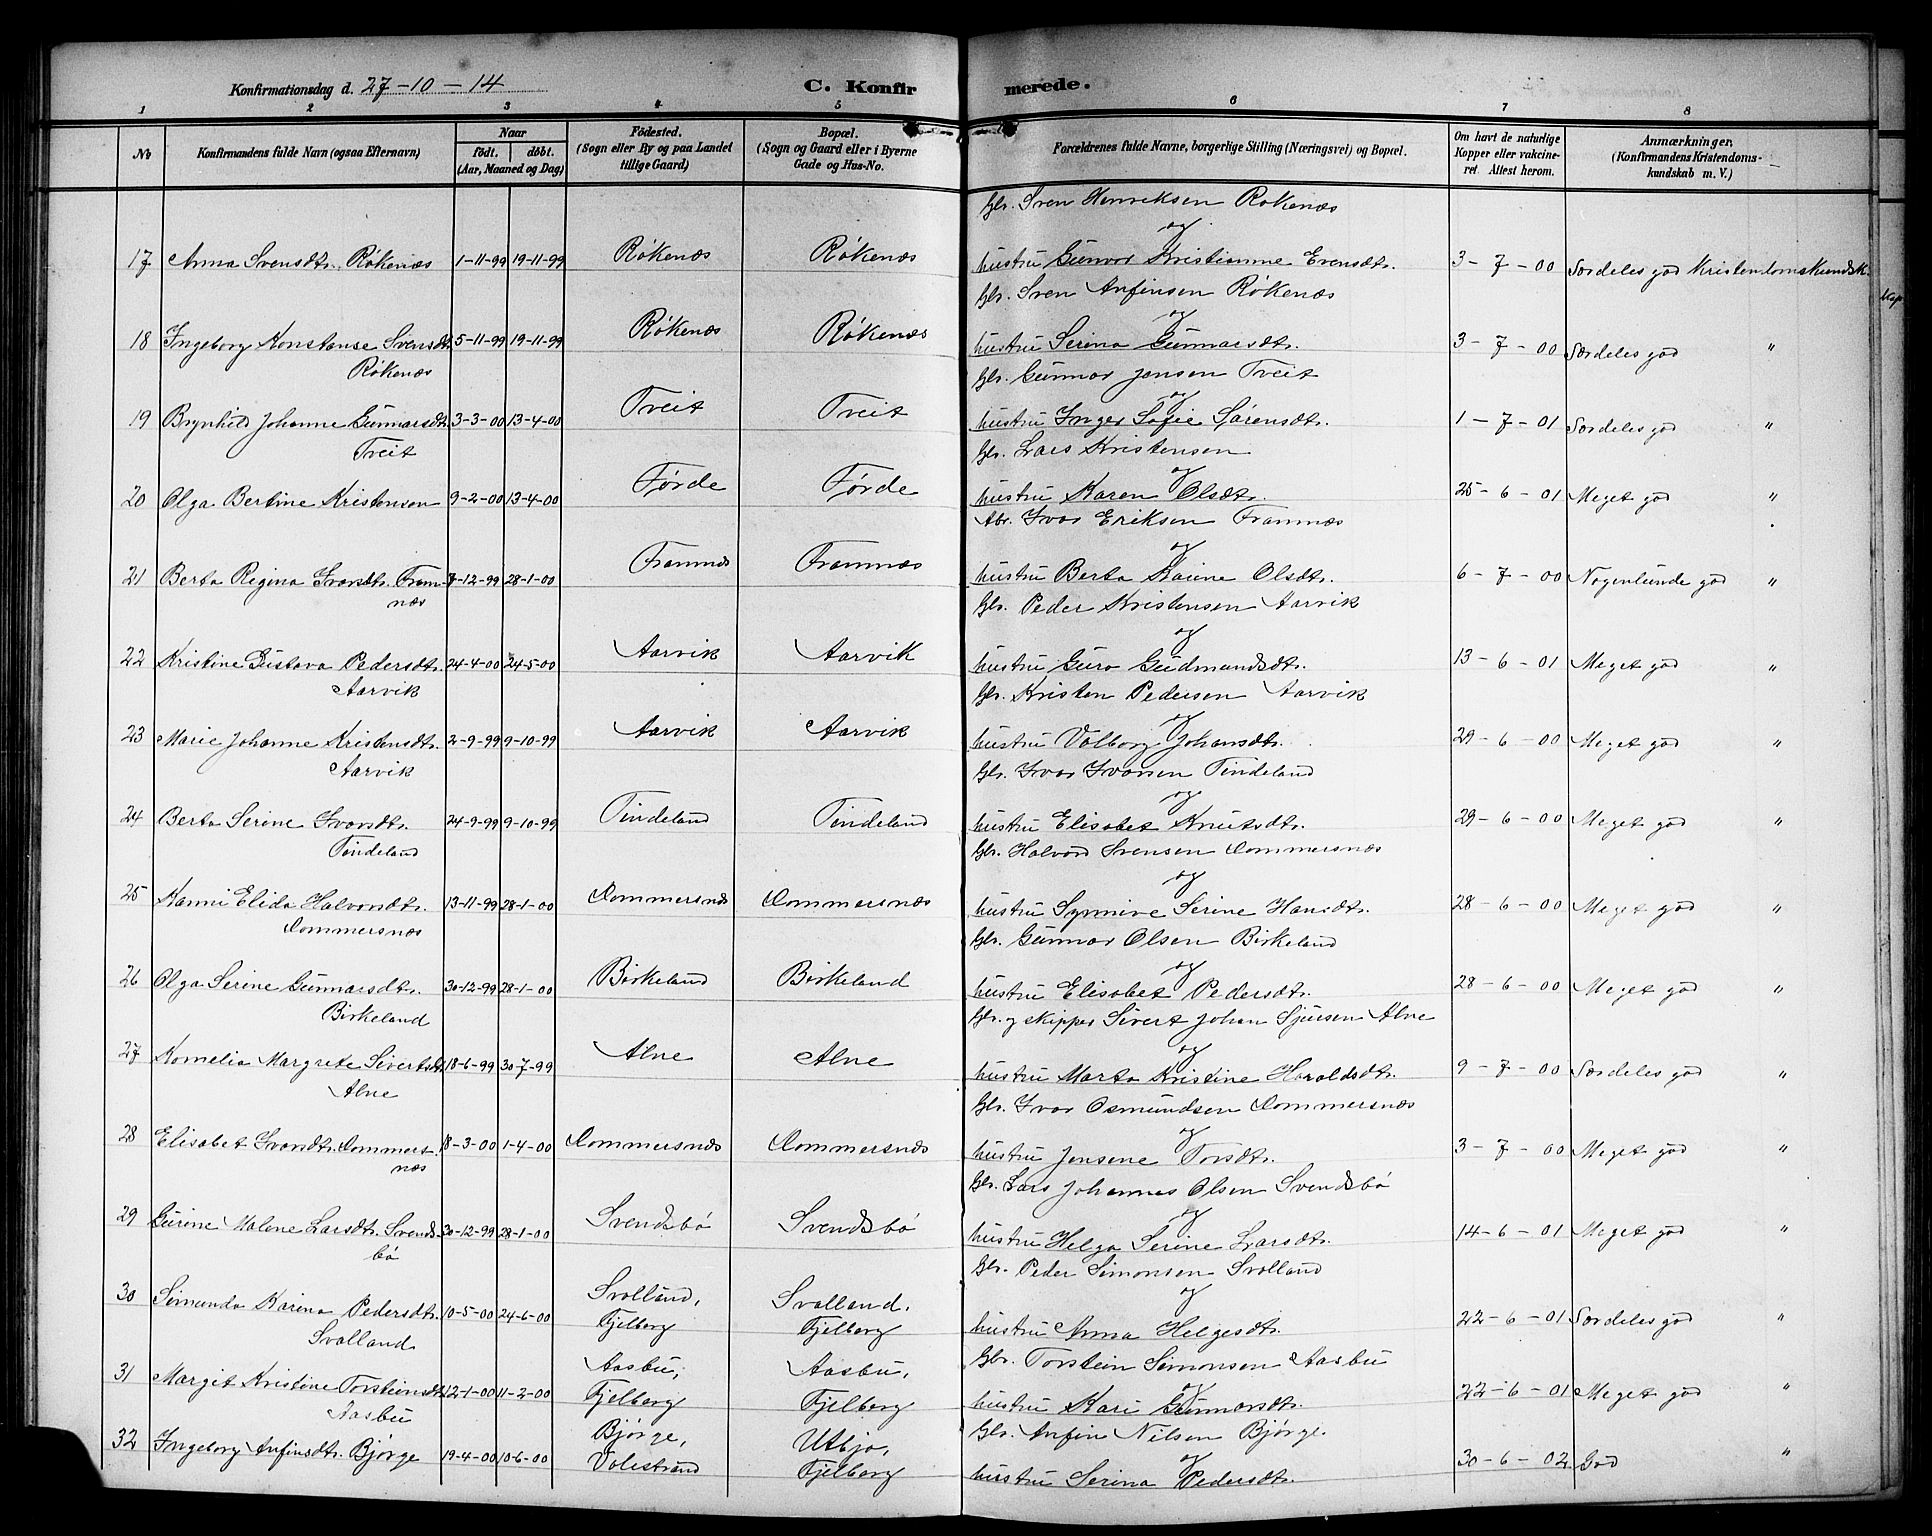 Konfirmationsdag d. 27-10-14
C. Konfirmerede.
1 2 3 4 5 6 7 8
No
Konfirmandens fulde Navn (ogsaa Efternavn)
Naar
født. døbt.
(Aar, Maaned og Dag)
Fødested.
(Sogn eller By og paa Landet
tillige Gaard)
Bopæl.
(Sogn og Gaard eller i Byerne
Gade og Hus-No.
Forældrenes fulde Navne, borgerlige Stilling (Næringsvei) og Bopæl.
Om havt de naturlige
Kopper eller vakcine-
ret. Attest herom.
Anmærkninger.
(Konfirmandens Kristendoms-
kundskab m. V.)
Gbr. Sven Henriksen Røkenæs
og
17 Anna Svensdtr. Røkenæs 1-11-99 19-11-99 Røkenæs Røkenæs hustru Gunvor Kristianne Evensdtr. 3-7-00 Særdeles god Kristendomskundsk.
Gbr. Sven Anfinsen Røkenæs
og
18 Ingeborg Konstanse Svensdt. 5-11-99 19-11-99 Røkenæs Røkenæs hustru Serina Gunnarsdtr. 3-7-00 Særdeles god "
Røkenæs
Gbr. Gunnar Jensen Tveit
og
19 Brynhild Johanne Gunnarsdt. 3-3-00 13-4-00 Tveit Tveit hustru Inger Sofie Sørensdtr. 1-7-01 Særdeles god "
Tveit
Gbr. Lars Kristensen
og
20 Olga Bertine Kristensen 9-2-00 13-4-00 Førde Førde hustru Karen Olsdtr. 25-6-01 Meget god "
Abr. Ivar Eriksen Framnæs
og
21 Berta Regina Ivarsdtr. Fram- 7-12-99 28-1-00 Framnæs Framnæs hustru Berta Karine Olsdtr. 6-7-00 Nogenlunde god "
næs
Gbr. Peder Kristensen Aarvik
og
22 Kristine Gustava Pedersdtr. 24-4-00 24-5-00 Aarvik Aarvik hustru Guro Gudmundsdtr. 13-6-01 Meget god "
Aarvik
Gbr. Kristen Pedersen Aarvik
og
23 Marie Johanne Kristensdtr. 2-9-99 9-10-99 Aarvik Aarvik hustru Valborg Johansdtr. 29-6-00 Meget god "
Aarvik
Gbr. Ivar Ivarsen Tindeland
og
24 Berta Serine Ivarsdtr. 24-9-99 9-10-99 Tindeland Tindeland hustru Elisabet Knutsdtr. 29-6-00 Meget god "
Tindeland
Gbr. Halvord Svensen Dommersnæs
og
25 Kanni Elida Halvorsdtr. 13-11-99 28-1-00 Dommersnæs Dommersnæs hustru Synnive Serine Hansdtr. 28-6-00 Meget god "
Dommersnæs
Gbr. Gunnar Olsen Birkeland
og
26 Olga Serine Gunnarsdtr. 30-12-99 28-1-00 Birkeland Birkeland hustru Elisabet Pedersdtr. 28-6-00 Meget god "
Birkeland
Gbr. og skipper Sivert Johan Sjursen Alne
og
27 Kornelia Margrete Sivertsdt. 18-6-99 30-7-99 Alne Alne hustru Marta Kristine Haraldsdtr. 9-7-00 Særdeles god "
Alne
Gbr. Ivar Osmundsen Dommersnæs
og
28 Elisabet Ivarsdtr. Dommers- 18-3-00 1-4-00 Dommersnæs Dommersnæs hustru Jensene Torsdtr. 3-7-00 Meget god "
næs
Gbr. Lars Johannes Olsen Svendsbø
og
29 Gurine Malene Larsdtr. Svends- 30-12-99 28-1-00 Svendsbø Svendsbø hustru Helga Serine Larsdtr. 14-6-01 Meget god "
bø
Gbr. Peder Simonsen Svolland
og
30 Simunda Karina Pedersdtr. 10-5-00 24-6-00 Svolland, Svolland, hustru Anna Helgesdtr. 22-6-01 Særdeles god "
Svolland Fjelberg Fjelberg
Gbr. Torstein Simonsen Aasbu
og
31 Margit Kristine Torsteinsdt. 12-1-00 11-2-00 Aasbu, Aasbu, hustru Kari Gunnarsdtr. 22-6-01 Meget god "
Aasbu Fjelberg Fjelberg
Gbr. Anfin Nilsen Bjørge.
og
32 Ingeborg Anfinsdtr. Bjørge 19-4-00 10-6-00 Bjørge, Utbjo, hustru Serina Pedersdtr. 30-6-02 God "
Valestrand Fjelberg